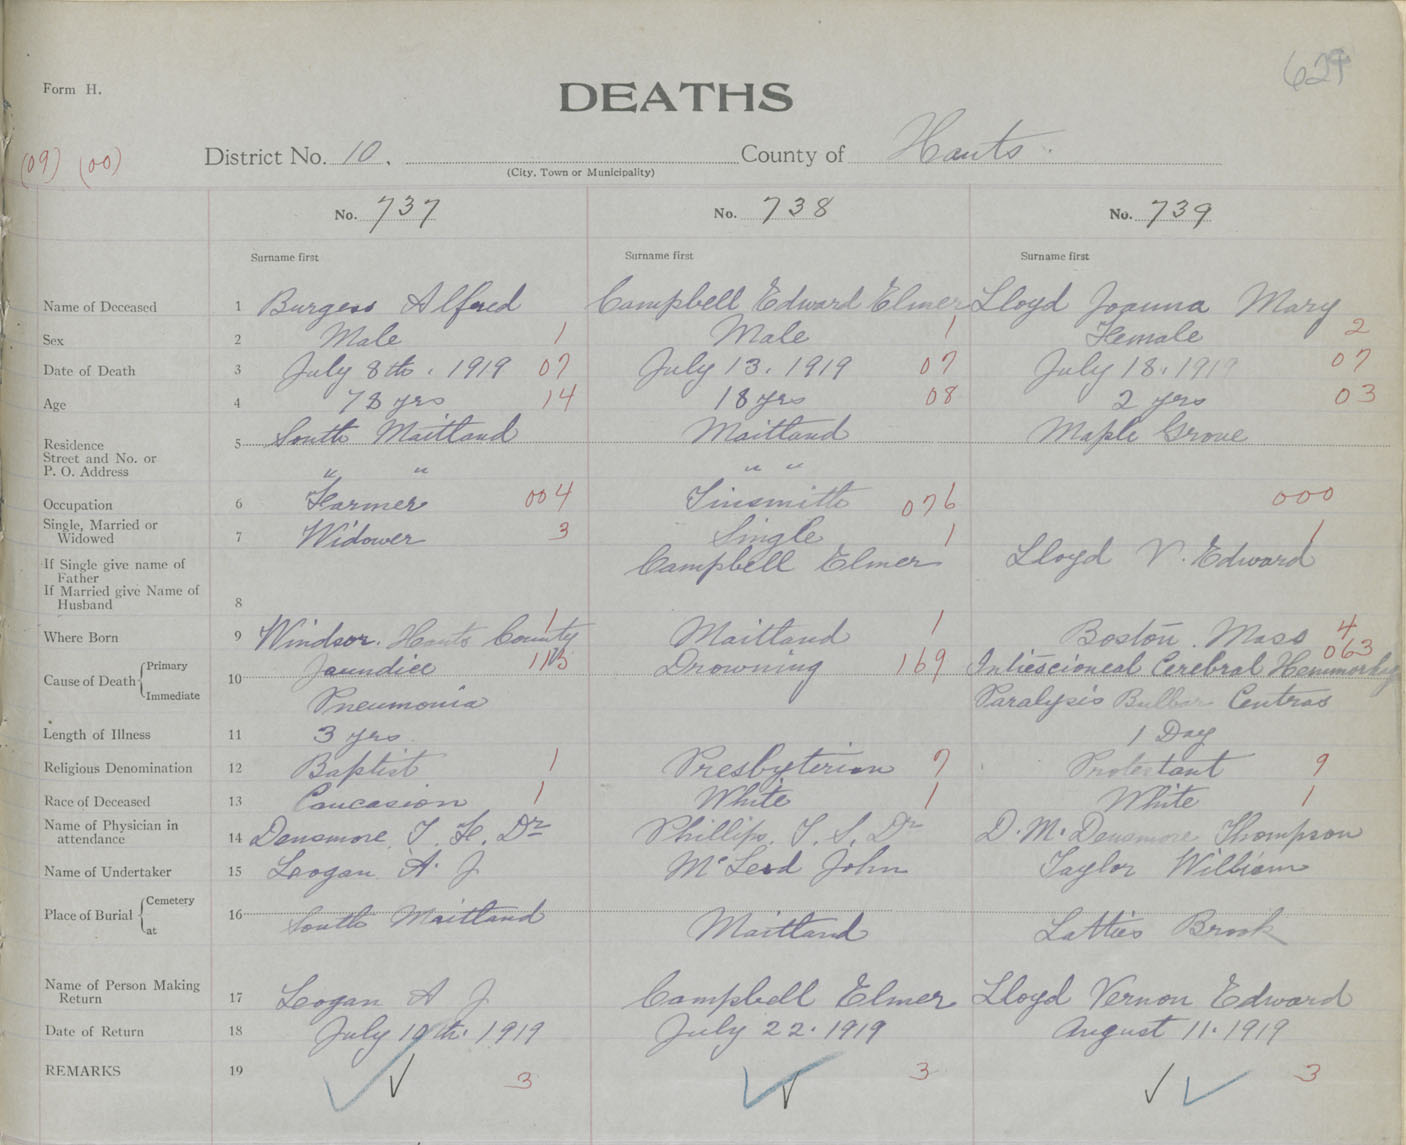 Form H.
DEATHS
629
(09) (00)
District No. 10. County of Hants.
(City, Town or Municipality)
No. 737 No. 738 No. 739
Surname first Surname first Surname first
Name of Deceased 1 Burgess Alfred Campbell Edward Elmer Lloyd Joanna Mary
Sex 2 Male 1 Male 1 Female 2
Date of Death 3 July 8th. 1919 07 July 13. 1919 07 July 18. 1919 07
Age 4 78 yrs 14 18 yrs 08 2 yrs 03
Residence Street and No. or P. O. Address 5 South Maitland Maitland Maple Grove
" " " "
Occupation 6 Farmer 004 Tinsmith 076 000
Single, Married or Widowed 7 Widower 3 Single 1 1
If Single give name of Father Campbell Elmer Lloyd V. Edward
If Married give Name of Husband 8
Where Born 9 Windsor. Hants County 1 Maitland 1 Boston. Mass 4
Cause of Death Primary 10 Jaundice Drowning 169 Cerebral Hemmorhg 063
Immediate Pneumonia Paralysis Bulbar Centras
Length of Illness 11 3 yrs 1 Day
Religious Denomination 12 Baptist 1 Presbyterian 7 Protestant 9
Race of Deceased 13 Caucasion 1 White 1 White 1
Name of Physician in attendance 14 Densmore, T. F. Dr Phillips, T. S. Dr D. M. Densmore Thompson
Name of Undertaker 15 Leogan A. J McLeod John Taylor William
Place of Burial Cemetery at 16 South Maitland Maitland Latties Brook
Name of Person Making Return 17 Leogan A J Campbell Elmer Lloyd Vernon Edward
Date of Return 18 July 10th. 1919 July 22. 1919 August 11. 1919
REMARKS 19 3 3 3